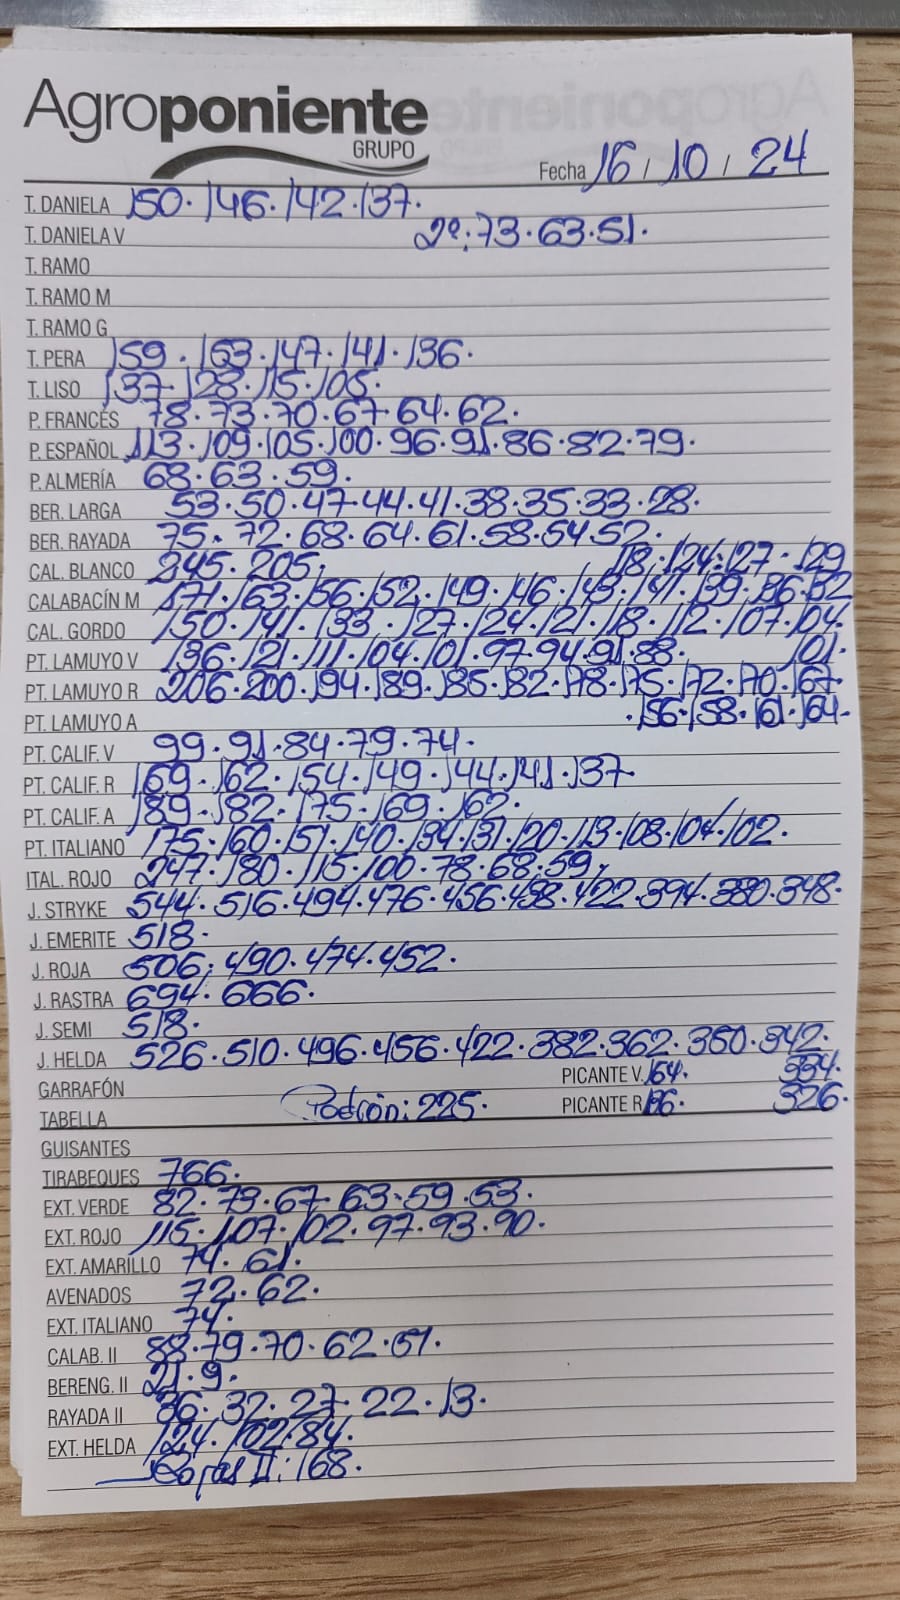 Agroponiente
GRUPO
Fecha 16 / 10 / 24
T. DANIELA 150. 146. 142. 137.
T. DANIELA V 2ª: 73. 63. 51.
T. RAMO
T. RAMO M
T. RAMO G
T. PERA 159. 163. 147. 141. 136.
T. LISO 137. 128. 115. 105.
P. FRANCÉS 78. 73. 70. 67. 64. 62.
P. ESPAÑOL 113. 109. 105. 100. 96. 91. 86. 82. 79.
P. ALMERÍA 68. 63. 59.
BER. LARGA 53. 50. 47. 44. 41. 38. 35. 33. 28.
BER. RAYADA 75. 72. 68. 64. 61. 58. 54. 52.
CAL. BLANCO 245. 205. 118. 124. 127. 129
CALABACÍN M 171. 163. 156. 152. 149. 146. 143. 141. 139. 136. 132
CAL. GORDO 150. 141. 133. 127. 124. 121. 118. 112. 107. 104.
PT. LAMUYO V 136. 121. 111. 104. 101. 97. 94. 91. 88. 101.
PT. LAMUYO R 206. 200. 194. 189. 185. 182. 178. 175. 172. 170. 167.
PT. LAMUYO A . 156. 158. 161. 164.
PT. CALIF. V 99. 91. 84. 79. 74.
PT. CALIF. R 169. 162. 154. 149. 144. 141. 137.
PT. CALIF. A 189. 182. 175. 169. 162.
PT. ITALIANO 175. 160. 151. 140. 134. 131. 120. 113. 108. 104. 102.
ITAL. ROJO 247. 180. 115. 100. 78. 68. 59.
J. STRYKE 544. 516. 494. 476. 456. 438. 422. 394. 380. 348.
J. EMERITE 518.
J. ROJA 506. 490. 474. 452.
J. RASTRA 694. 666.
J. SEMI 518.
J. HELDA 526. 510. 496. 456. 422. 382. 362. 350. 342.
GARRAFÓN PICANTE V. 164. 334.
TABELLA Padrón: 225. PICANTE R 196. 326.
GUISANTES
TIRABEQUES 766.
EXT. VERDE 82. 73. 67. 63. 59. 53.
EXT. ROJO 115. 107. 102. 97. 93. 90.
EXT. AMARILLO 74. 61.
AVENADOS 72. 62.
EXT. ITALIANO 74.
CALAB. II 88. 79. 70. 62. 51.
BERENG. II 21. 9.
RAYADA II 36. 32. 27. 22. 13.
EXT. HELDA 124. 102. 84.
Rojas II: 168.